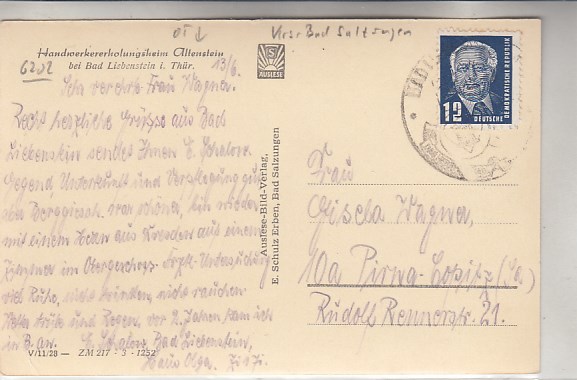 OT ↓
Krsr Bad Salzungen
Handwerkererholungsheim Altenstein
bei Bad Liebenstein i. Thür.
6202
13/6.
AUSLESE
Frau Wagner.
Recht herzliche Grüße aus Bad
Liebenstein sendet Ihnen E. Schalow.
Gegend, Unterkunft und Verpflegung gut
war schöner, bin wieder
mit einem Herrn aus Dresden aus einem
Zimmer im Obergeschoß. Ärztl. Untersuchung
viel Ruhe, nicht trinken, nicht rauchen
und Rosen, vor 2 Jahren kam ich
E. Schalow, Bad Liebenstein,
Haus Olga.
V/11/28 — ZM 217 - 3 - 1252
Auslese-Bild-Verlag,
E. Schulz Erben, Bad Salzungen
12
DEUTSCHE
DEMOKRATISCHE REPUBLIK
Frau
Gisela Wagner,
10a Pirna-Copitz (Sa.)
Rudolf Rennerstr. 21.